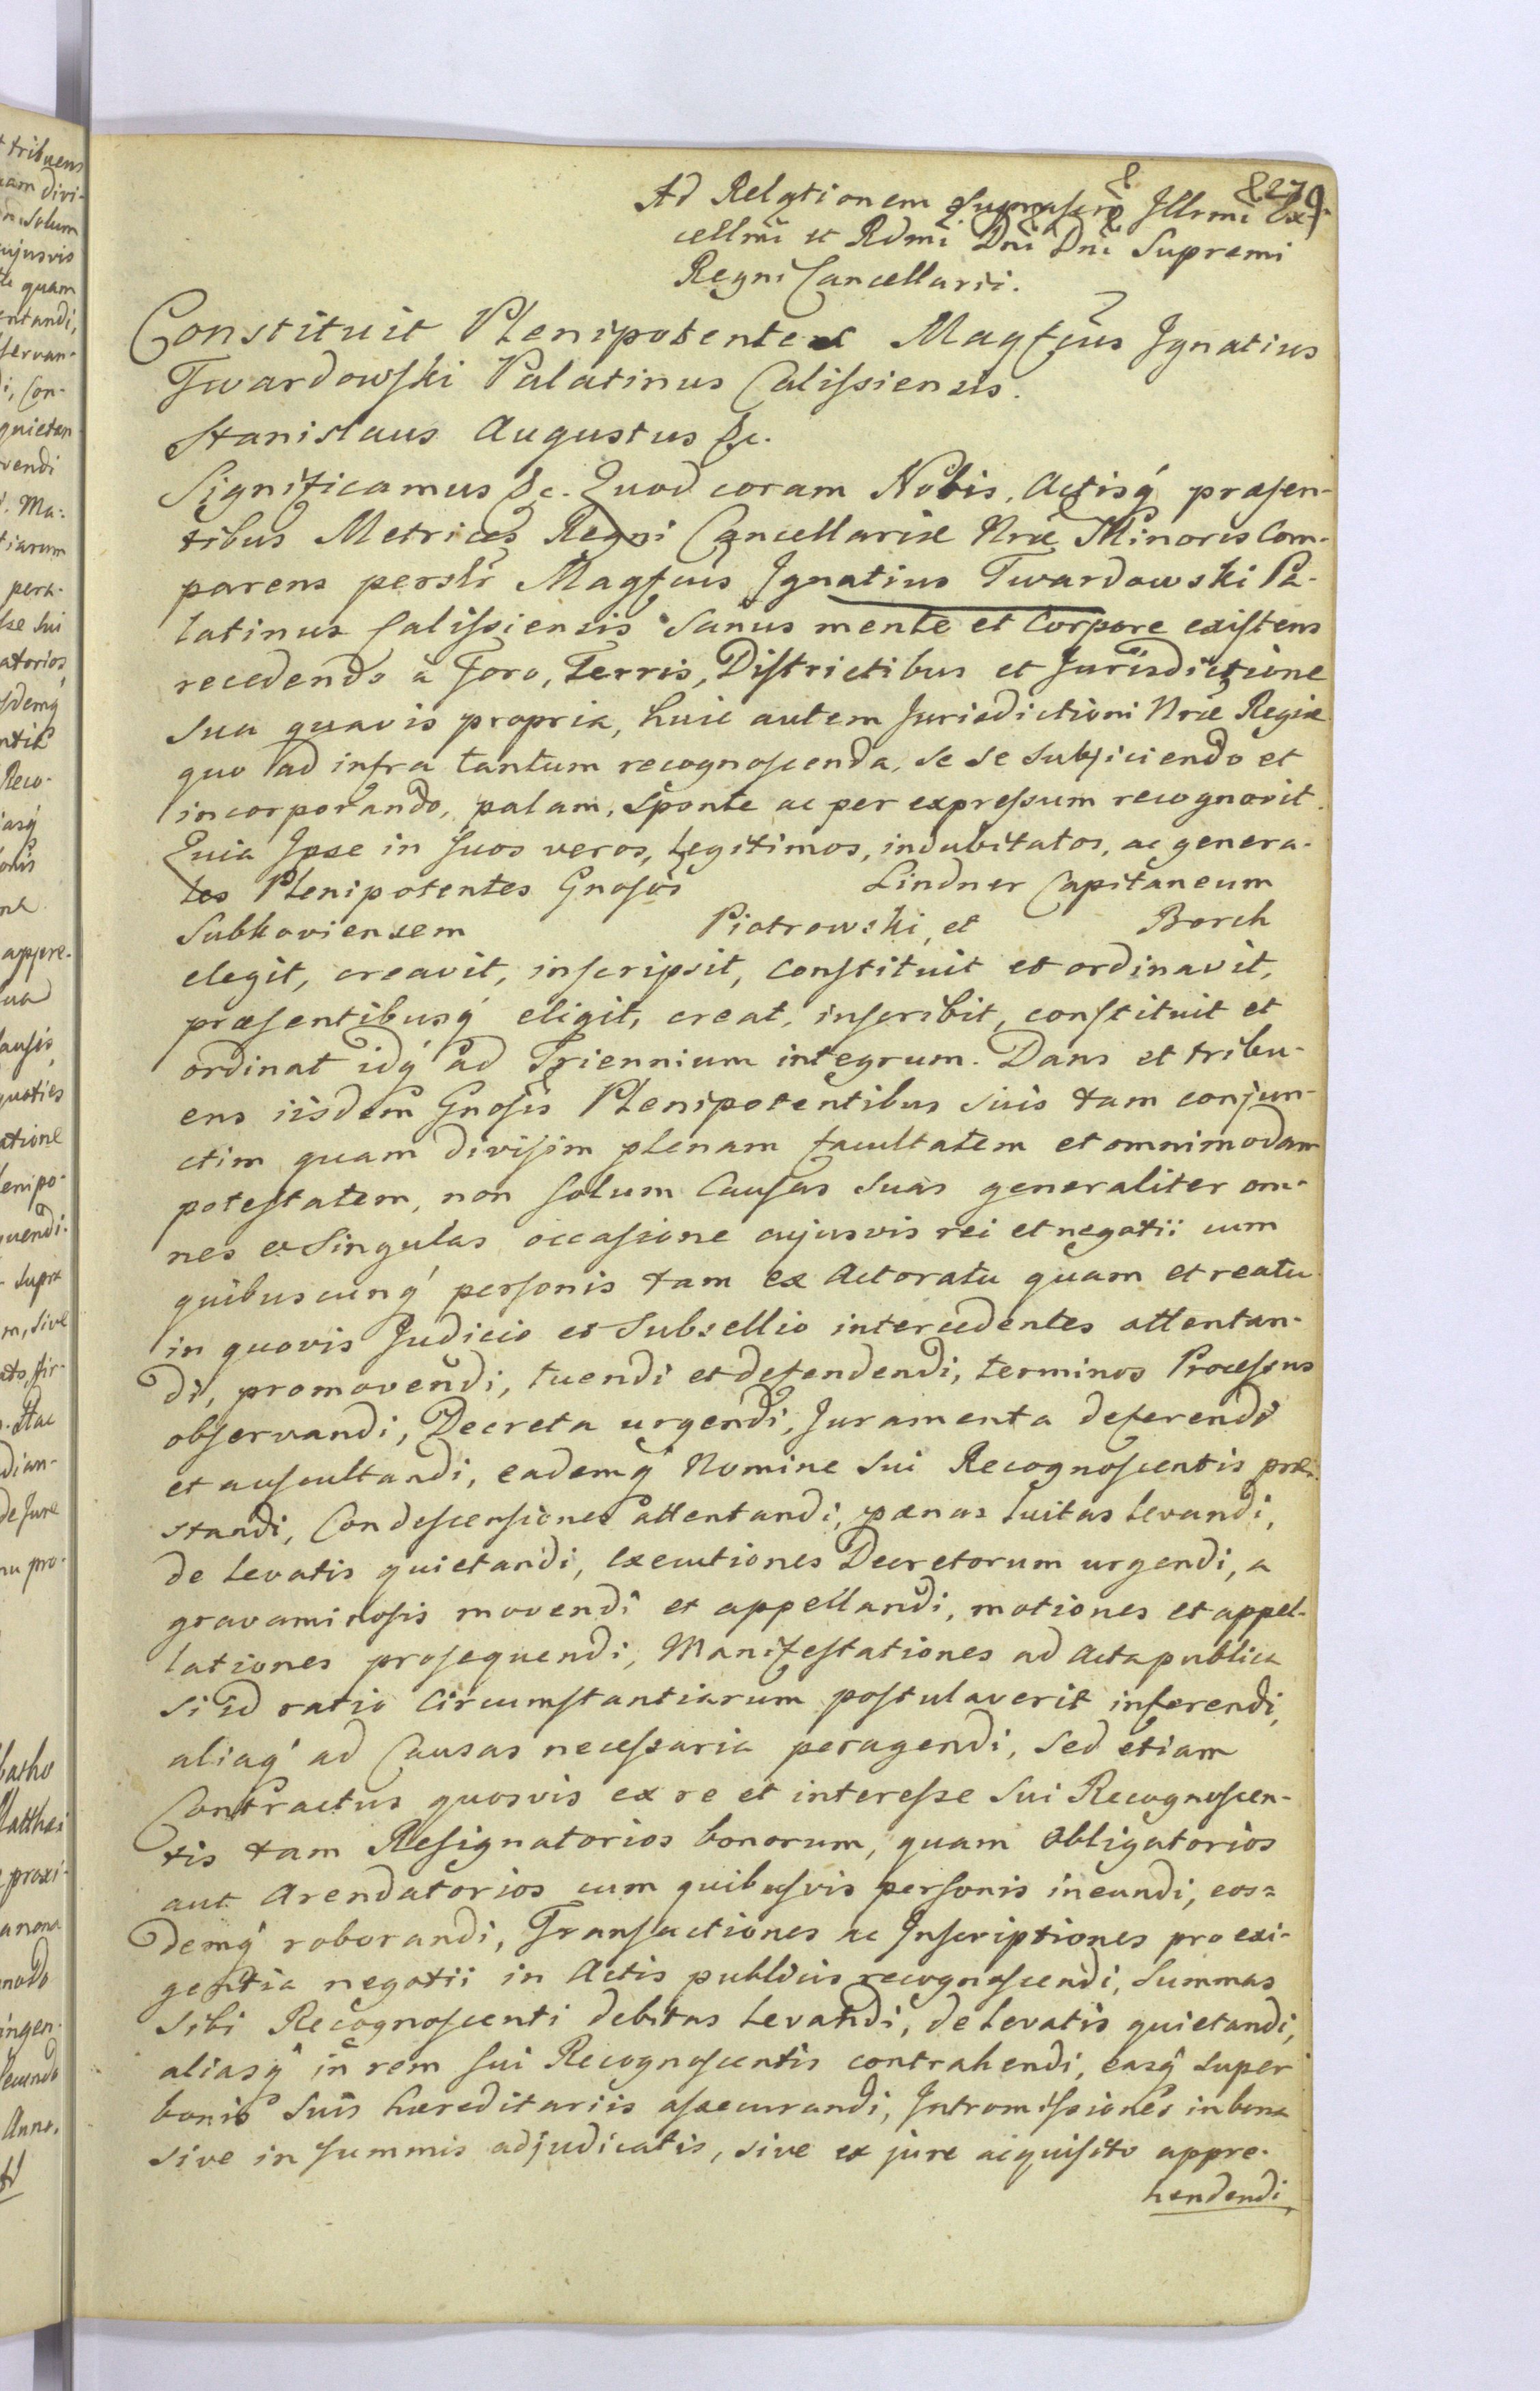 827
Ad Relationem Illrmi Ex-
cellmi et Rdmi Dni Dni Supremi
Regni Cancellarii.
Constituit Plenipotentes Magfcus Ignatius
Twardowski Palatinus Calissiensis.
Stanislaus Augustus &c.
Significamus &c. Quod coram Nobis, Actisq́ præsen-
tibus Metrices Regni Cancellariæ Nræ Minoris Com-
parens personlr Magfcus Ignatius Twardowski Pa-
latinus Calissiensis sanus mente et Corpore existens
recedendo a Foro, Terris, Districtibus et Jurisdictione
sua quavis propria, huic autem Jurisdictioni Nræ Regiæ
quo ad infra tantum recognoscenda, se se subjiciendo et
incorporando, palam, sponte ac per expressum recognovit.
Quia Ipse in suos veros, legitimos, indubitatos, ac genera-
les Plenipotentes Gnosos Lindner Capitaneum
Subkoviensem Piotrowski, et Borch
elegit, creavit, inscripsit, constituit et ordinavit,
præsentibusq́ eligit, creat, inscribit, constituit et
ordinat idq́ ad Triennium integrum. Dans et tribu-
ens iisdem Gnosis Plenipotentibus suis tam conjun-
ctim quam divisim plenam facultatem et omnimodam
potestatem, non solum Causas suas generaliter om-
nes et singulas occasione cujusvis rei et negotii cum
quibuscunq́ personis tam ex Actoratu quam et reatu
in quovis Judicio et Subsellio intercedentes attentan-
di, promovendi, tuendi et defendendi, terminos Processus
observandi, Decreta urgendi, Juramenta deferendi
et auscultandi, eademq́ Nomine sui Recognoscentis præ-
standi, Condescensiones attentandi, pænas luitas levandi,
de levatis quietandi, executiones Decretorum urgendi, a
gravaminosis movendi et appellandi, motiones et appel-
lationes prosequendi, Manifestationes ad Acta publica
si id ratio Circumstantiarum postulaverit inferendi,
aliaq́ ad Causas necessaria peragendi, sed etiam
Contractus quosvis ex re et interesse sui Recognoscen-
tis tam Resignatorios bonorum, quam Obligatorios
aut Arendatorios cum quibusvis personis ineundi, eos=
demq́ roborandi, Transactiones ac Inscriptiones pro exi-
gentia negotii in Actis publicis recognoscendi, Summas
sibi Recognoscenti debitas levandi, de levatis quietandi,
aliasq́ in rem sui Recognoscentis contrahendi, easq́ super
bonis suis hæreditariis assecurandi, Intromissiones in bona
sive in summis adjudicatis, sive ex jure acquisito appre-
hendendi,